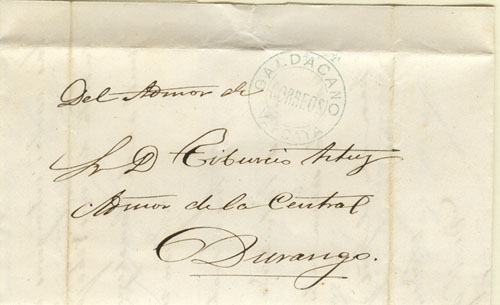 Del Admor de
GALDACANO
CORREOS
VIZCAYA
Sr D Tiburcio
Admor de la Central
Durango.